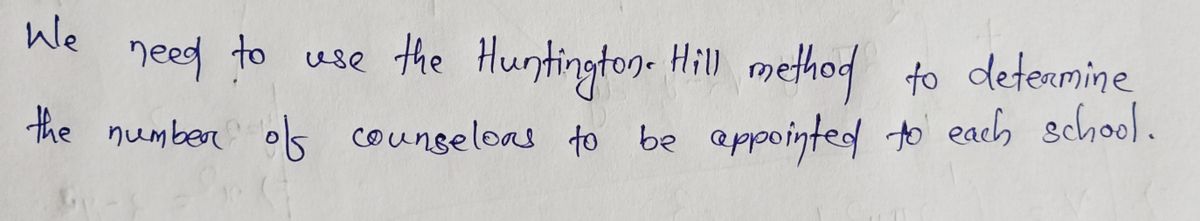 We need to use the Huntington-Hill method to determine
the number of counselors to be appointed to each school.